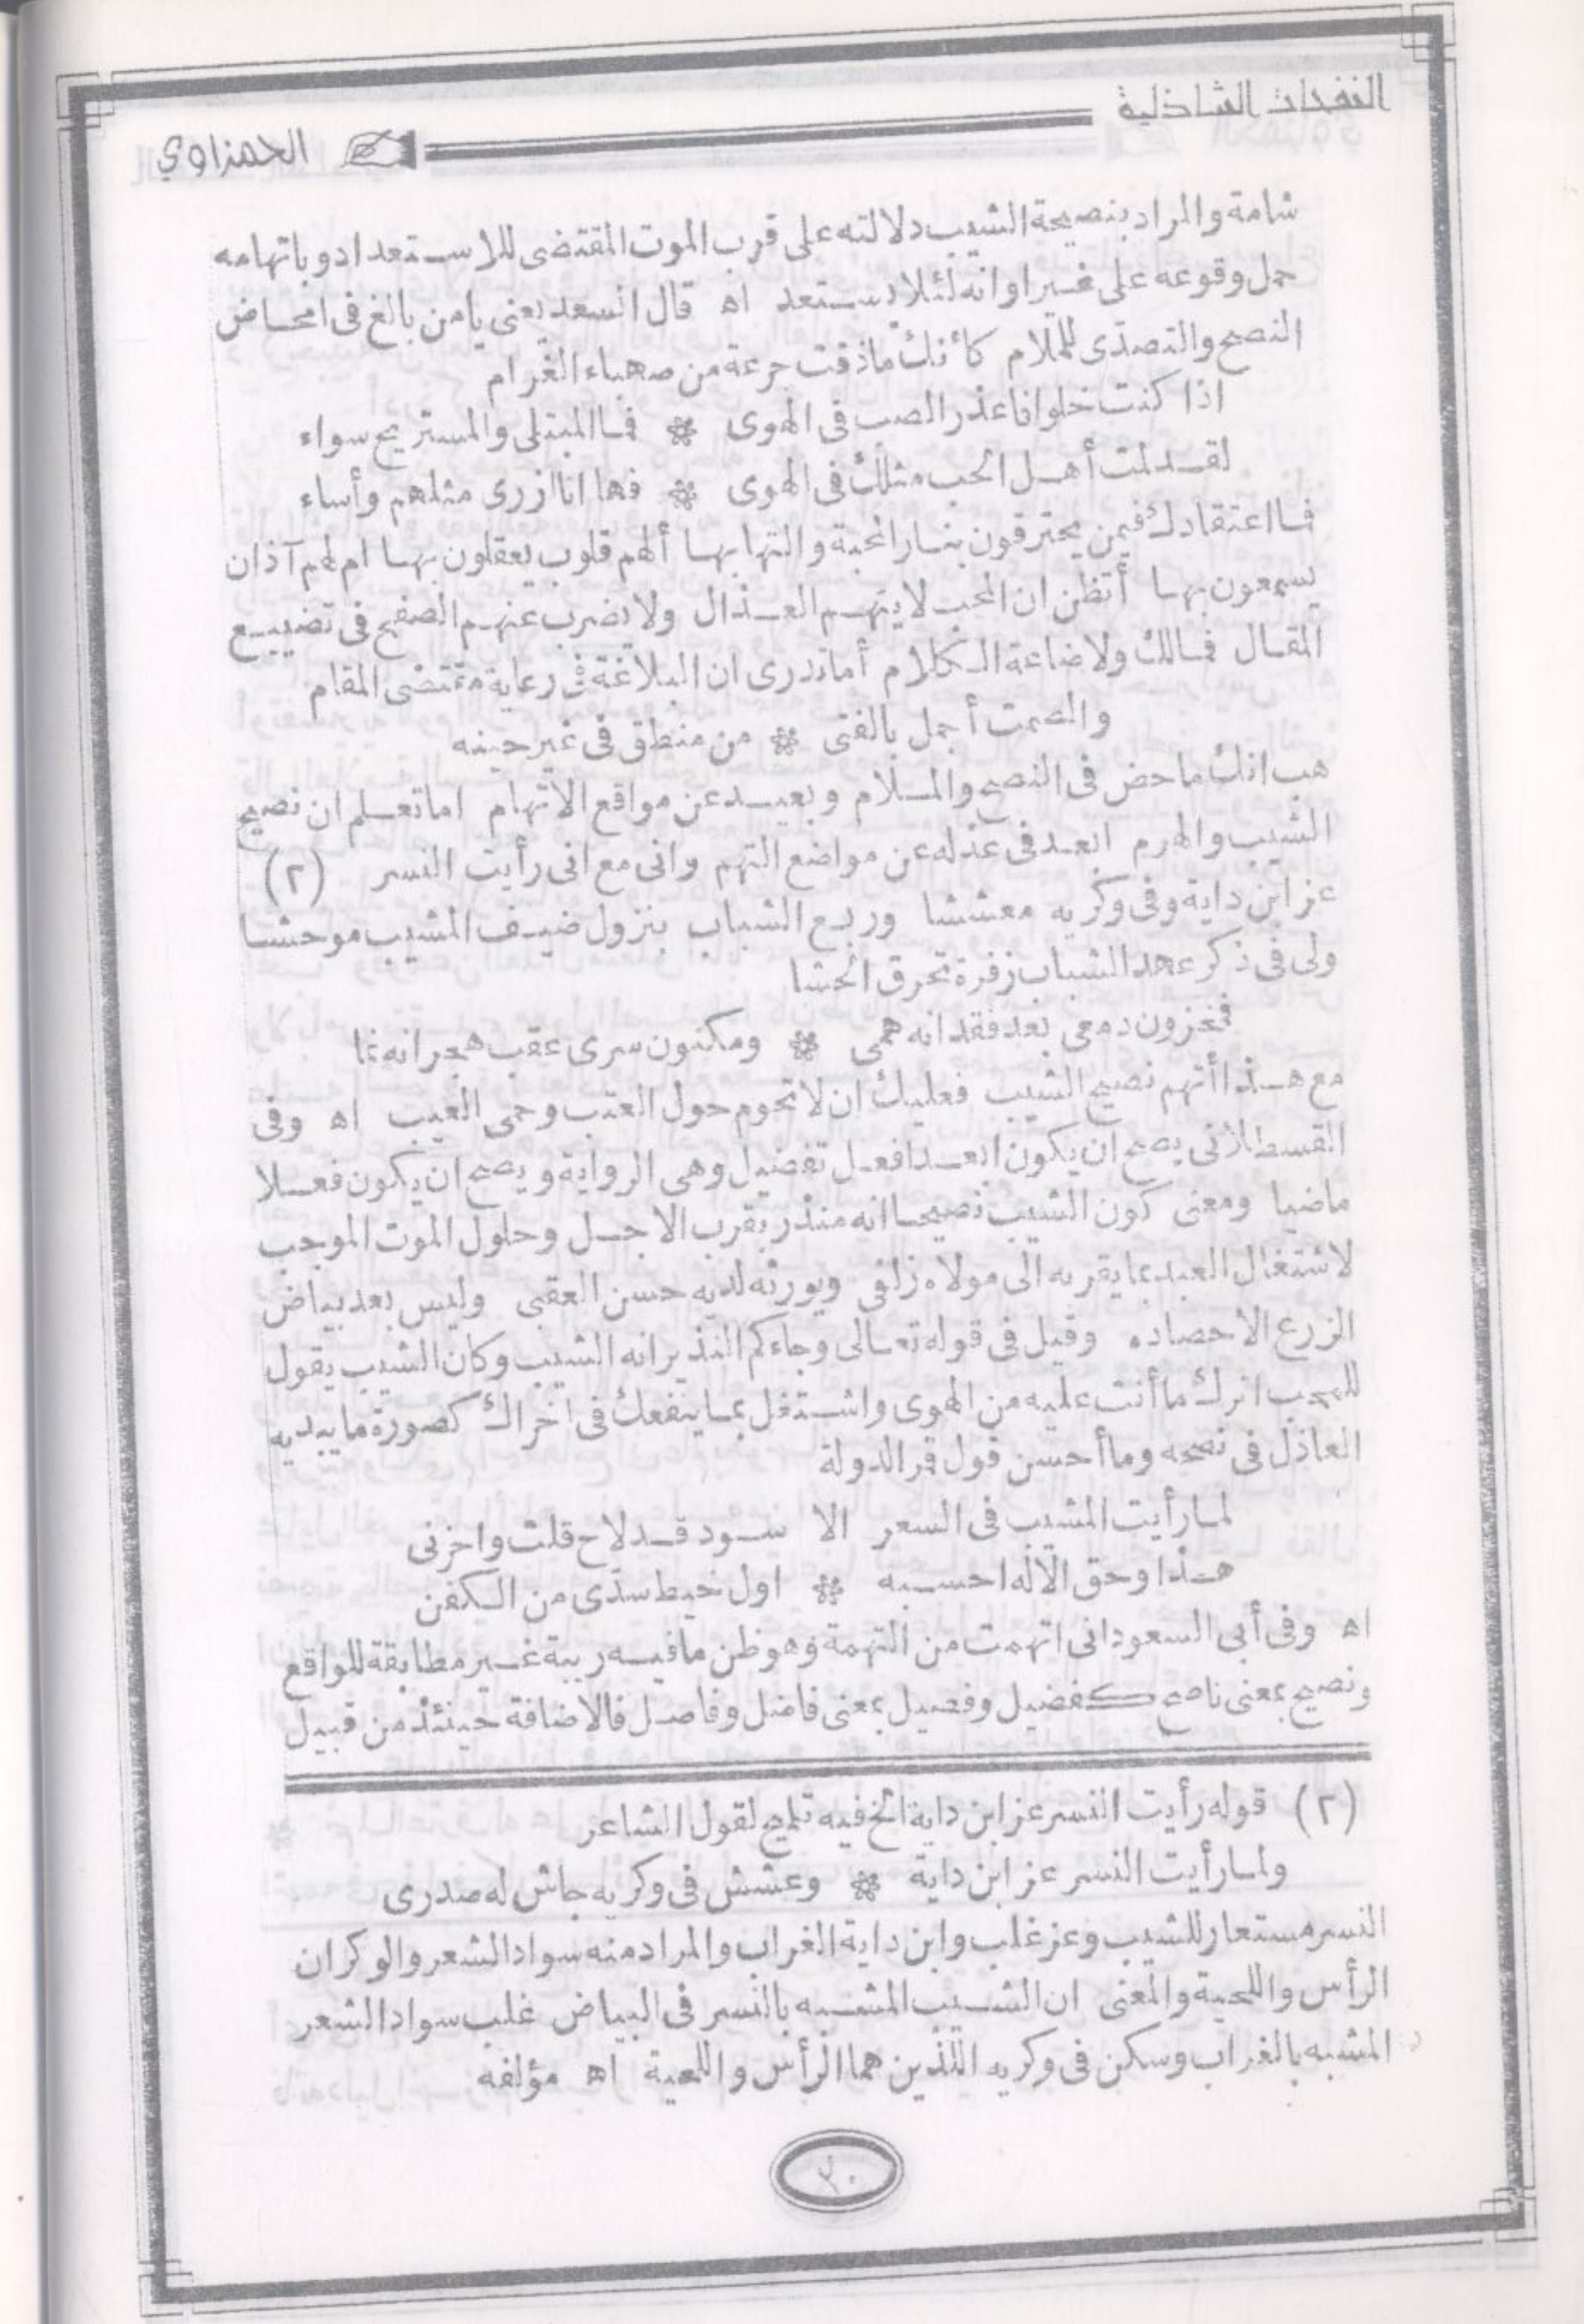 النفحات الشاذلية
الحمزاوي
شامة والمراد بنصيحة الشيب دلالته على قرب الموت المقتضى للاستعداد وباتهامه
حمل وقوعه على غير اوانه لئلا يستعد اه قال السعد يعنى يامن بالغ فى امحاض
النصح والتصدّى للملام كأنك ماذقت جرعة من صهباء الغرام
اذا كنت خلوا فاعذر الصب فى الهوى * فما المبتلى والمستريح سواء
لقد لمت أهل الحب مثلك فى الهوى * فها انا ازرى مثلهم وأساء
فما اعتقادك فيمن يحترقون بنار المحبة والتهابها ألهم قلوب يعقلون بها ام لهم آذان
يسمعون بها أتظن ان المحب لا يتهم العذال ولا يضرب عنهم الصفح فى تضييع
المقال فمالك ولاضاعة الكلام أما تدرى ان البلاغة فى رعاية مقتضى المقام
والصمت أجمل بالفتى * من منطق فى غير حينه
هب انك ماحض فى النصح والملام وبعيد عن مواقع الاتهام اما تعلم ان نصيح
الشيب والهرم ابعد فى عذله عن مواضع التهم وانى مع انى رأيت النسر (٢)
عز ابن داية وفى وكريه معششا وربع الشباب بنزول ضيف المشيب موحشا
ولى فى ذكر عهد الشباب زفرة تحرق الحشا
فمخزون دمعى بعد فقدانه همى * ومكنون سرى عقب هجرانه نما
مع هذا أتهم نصيح الشيب فعليك ان لا تحوم حول العتب وحمى العيب اه وفى
القسطلانى يصح ان يكون ابعد افعل تفضيل وهى الرواية ويصح ان يكون فعلا
ماضيا ومعنى كون الشيب نصيحا انه منذر بقرب الاجل وحلول الموت الموجب
لاشتغال العبد بما يقربه الى مولاه زلفى ويورثه لديه حسن العقبى وليس بعد بياض
الزرع الاحصاده وقيل فى قوله تعالى وجاءكم النذير انه الشيب وكان الشيب يقول
للمحب اترك ما أنت عليه من الهوى واشتغل بما ينفعك فى اخراك كصورة ما يبديه
العاذل فى نصحه وما أحسن قول قمر الدولة
لما رأيت المشيب فى السعر الا سود قد لاح قلت واحزنى
هذا وحق الاله احسبه * اول خيط سدّى من الكفن
اه وفى أبى السعود انى اتهمت من التهمة وهو ظن ما فيه ريبة غير مطابقة للواقع
ونصيح بمعنى ناصح كفضيل وفصيل بمعنى فاضل وفاصل فالاضافة حينئذ من قبيل
(٢) قوله رأيت النسر عز ابن داية الخ فيه تلميح لقول الشاعر
ولما رأيت النسر عز ابن داية * وعشش فى وكريه جاش له صدرى
النسر مستعار للشيب وعز غلب وابن داية الغراب والمراد منه سواد الشعر والوكران
الرأس واللحية والمعنى ان الشيب المشبه بالنسر فى البياض غلب سواد الشعر
المشبه بالغراب وسكن فى وكريه اللذين هما الرأس واللحية اه مؤلفه
٢٠